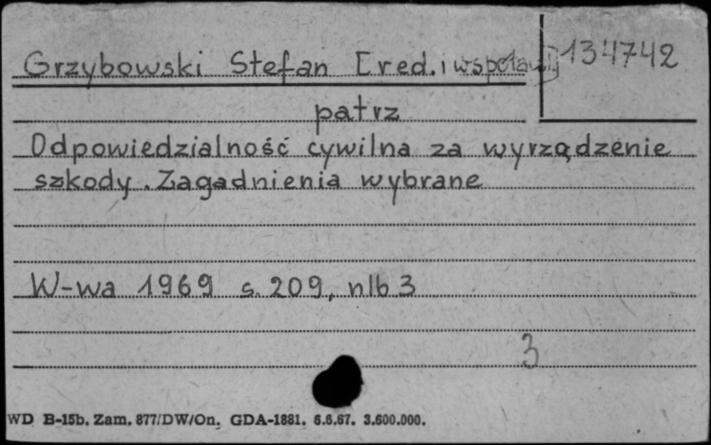 Grzybowski Stefan [red. i współaut.]
134742
patrz
Odpowiedzialność cywilna za wyrządzenie
szkody. Zagadnienia wybrane
W-wa 1969 s. 209, nlb 3
3
WD B-15b. Zam. 877/DW/On. GDA-1881. 6.6.67. 3.600.000.